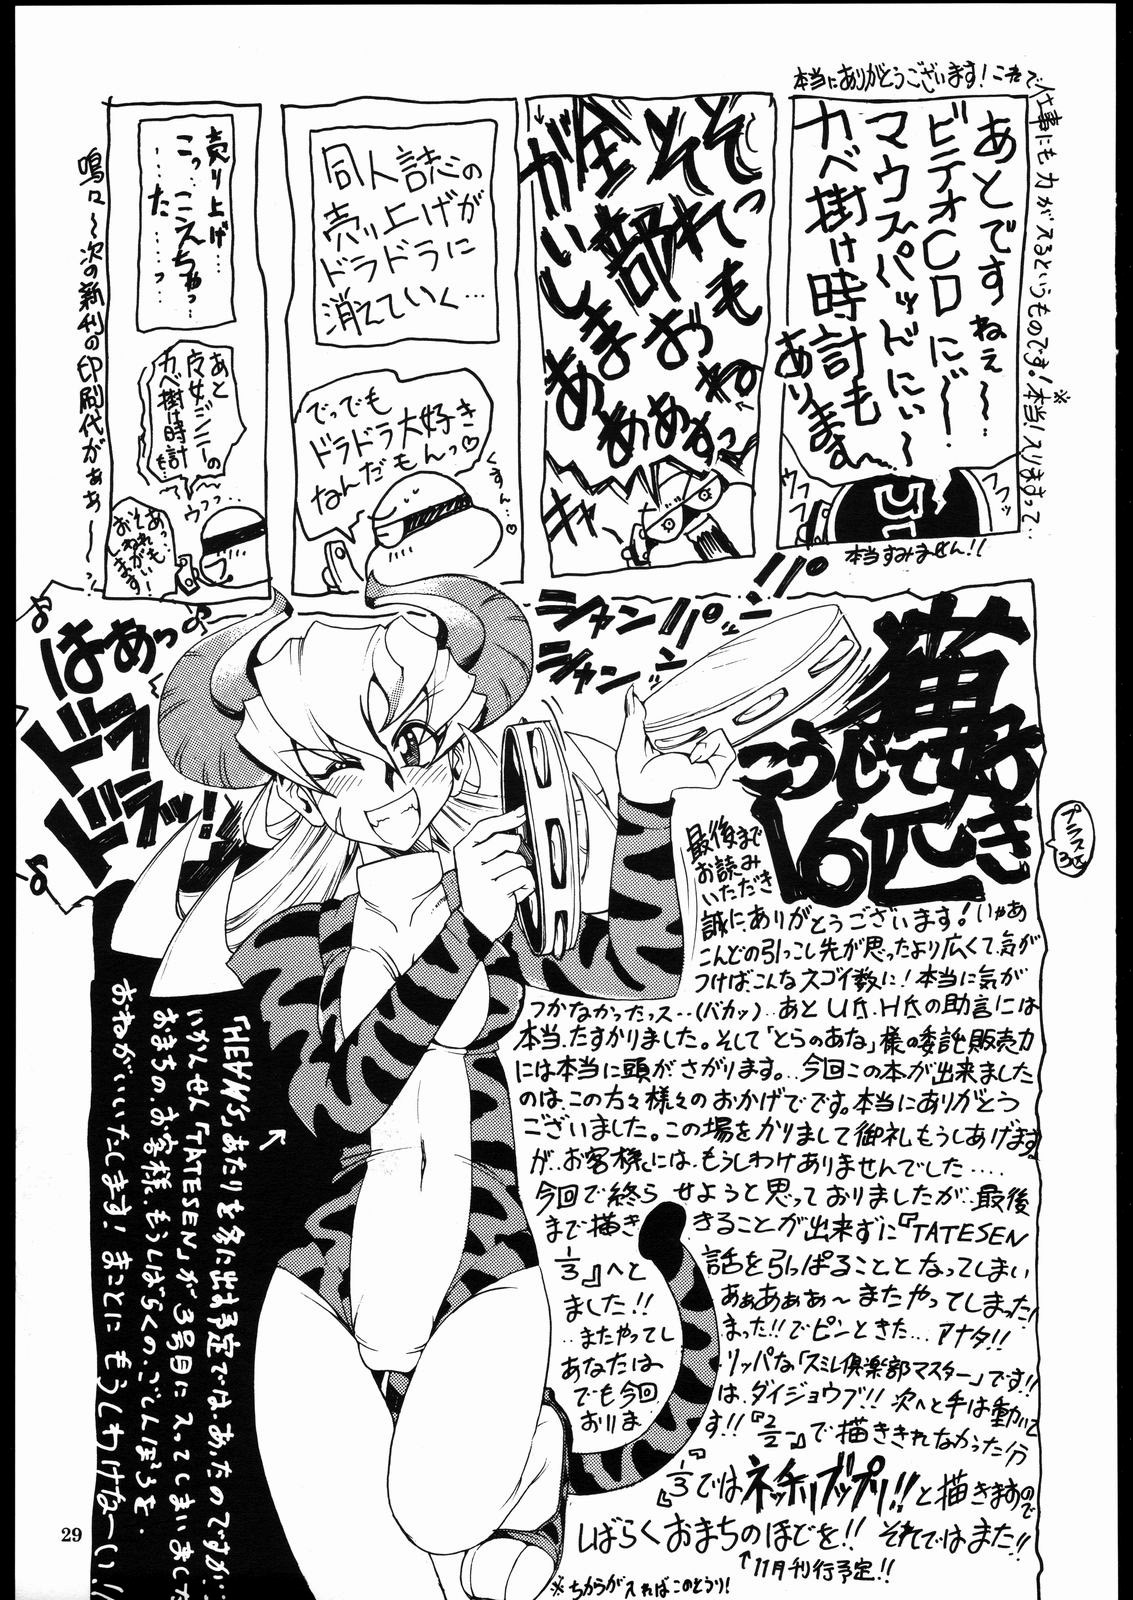 本当にありがとうございます!これで仕事にも力が入るというものです!本当!入りまっって..
あとですねぇ〜
ビデオCDにぃ〜
マウスパッドにぃ〜
カベ掛け時計も
あります〜
ウフフ
フッフッ
本当すみません!!
そそれっも
全部おね
がいしまああぁすっ
キャー
同人誌の
売り上げが
ドラドラに
消えていく…
でっでも
ドラドラ大好き
なんだもんっ♡
くすん…♡
売り上げ…
こっ…こえちゃっ…
……た………っ
あと
魔女っジニーの
カベ掛け時計も
ウフっ…
あっ…
それも
おねがい
します!
鳴々〜次の新刊の印刷代がぁぁ〜〜っ
はあっ
ドラ
ドラッ!!
シャンシャン
パンパン
猫好き
こうじて
16匹
プラス3匹
最後まで
お読み
いただき
誠にありがとうございます!いゃあ
こんどの引っこし先が思ったより広くて、気が
つけば、こんなスゴイ数に!本当に気が
つかなかったっス‥(バカッ)‥あとU氏、H氏の助言には
本当、たすかりました。そして「とらのあな」様の委託販売力
には本当に頭がさがります。‥今回この本が出来ました
のは、この方々様々のおかげでです。本当にありがとう
ございました。この場をかりまして御礼もうしあげます。
が、お客様には、もうしわけありませんでした‥‥
今回で終らせようと思っておりましたが‥最後
まで描ききることが出来ずに『TATESEN
1/3』へと話を引っぱることとなってしまい
ました!!あぁあぁぁ〜またやってしまった!
‥またやってしまった!!でピンときた‥アナタ!!
あなたは、リッパな「スミレ倶楽部マスター」です!!
でも今回は、ダイジョウブ!!次へと手は動いて
おります!!『2/2』で描ききれなかった分
『1/3』ではネッチリブップリ!!と描きますので
しばらくおまちのほどを!!それではまた!!
↑11月刊行予定!!
※ちからが入ればこのとうり!
「HEAN'S」あたりを冬に出す予定では、あったのですが…
いかんせん「TATESEN」が3号目に入ってしまいました
おまちの、お客様、もうしばらくの、ごしんぼうを、
おねがいいたします!まことにもうしわけなーい!!
29